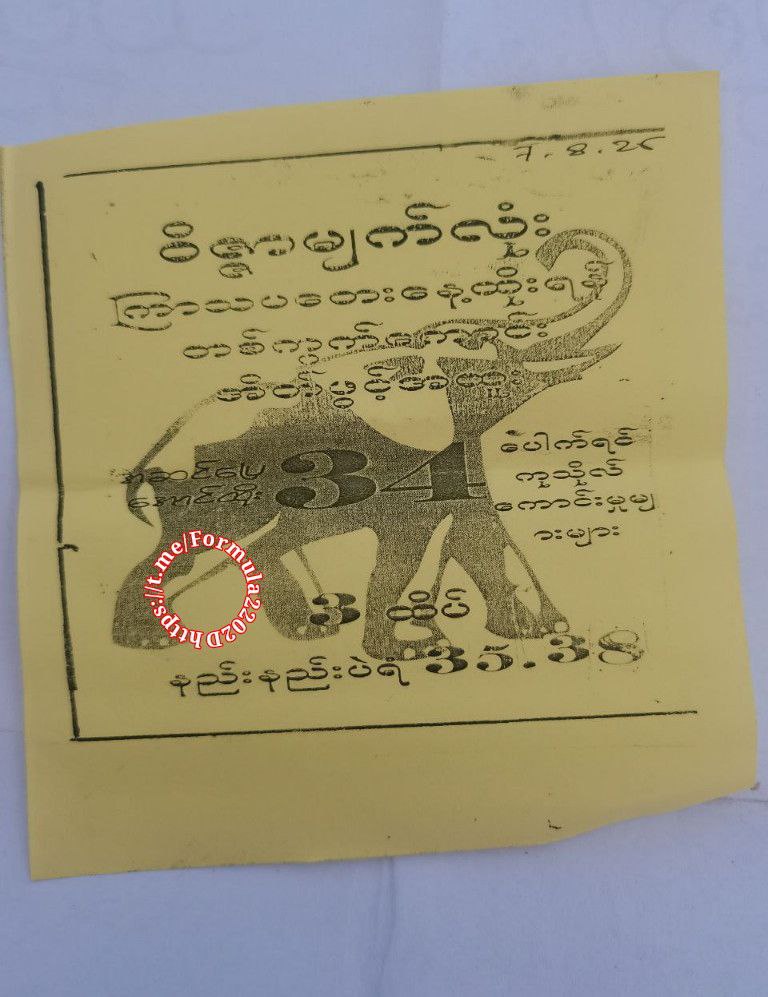 7.8.26
ဝိဇ္ဇာမျက်လုံး
ကြာသပတေးနေ့ထိုးရန်
တစ်ကွက်ကောင်း
အိတ်ဖွင့်အထူး
အဆင်ပြေ
အောင်ထိုး
34
ပေါက်ရင်
ကုသိုလ်
ကောင်းမှုမျ
ားများ
3 ထိပ်
နည်းနည်းပဲရံ 35.38
https://t.me/Formula2202D